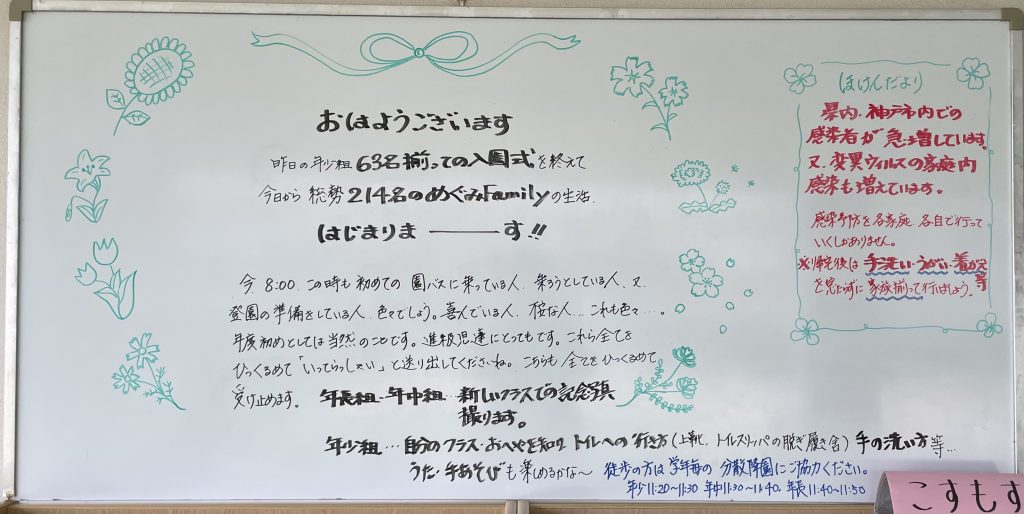 おはようございます
昨日の年少組 63名揃っての入園式を終えて
今日から 総勢 214名のめぐみFamilyの生活.
はじまりま―――す!!
今 8:00. この時も 初めての 園バスに乗っている人. 乗ろうとしている人. 又.
登園の準備をしている人. 色々でしょう。喜んでいる人. 不安な人... これも色々・・・。
年度初めとしては当然のことです。進級児達にとってもです。これら全てを
ひっくるめて「いってらっしゃい」と送り出してくださいね。こちらも 全てをひっくるめて
受け止めます。 年長組・年中組… 新しいクラスでの記念写真
撮ります。
年少組… 自分のクラス・おへやを知り トイレへの行き方(上靴. トイレスリッパの脱ぎ履き含) 手の洗い方 等…
うた・手あそびも楽しめるかな〜 徒歩の方は 学年毎の 分散降園にご協力ください。
年少11:20〜11:30 年中11:30〜11:40. 年長11:40〜11:50
ほけんだより
県内・神戸市内での
感染者が急増しています。
又. 変異ウィルスの家庭内
感染も増えています。
感染予防を各家庭. 各自で行って
いくしかありません。
※帰宅後は 手洗い・うがい・着がえ等
を忘れずに 家族揃って行いましょう。
こすもす